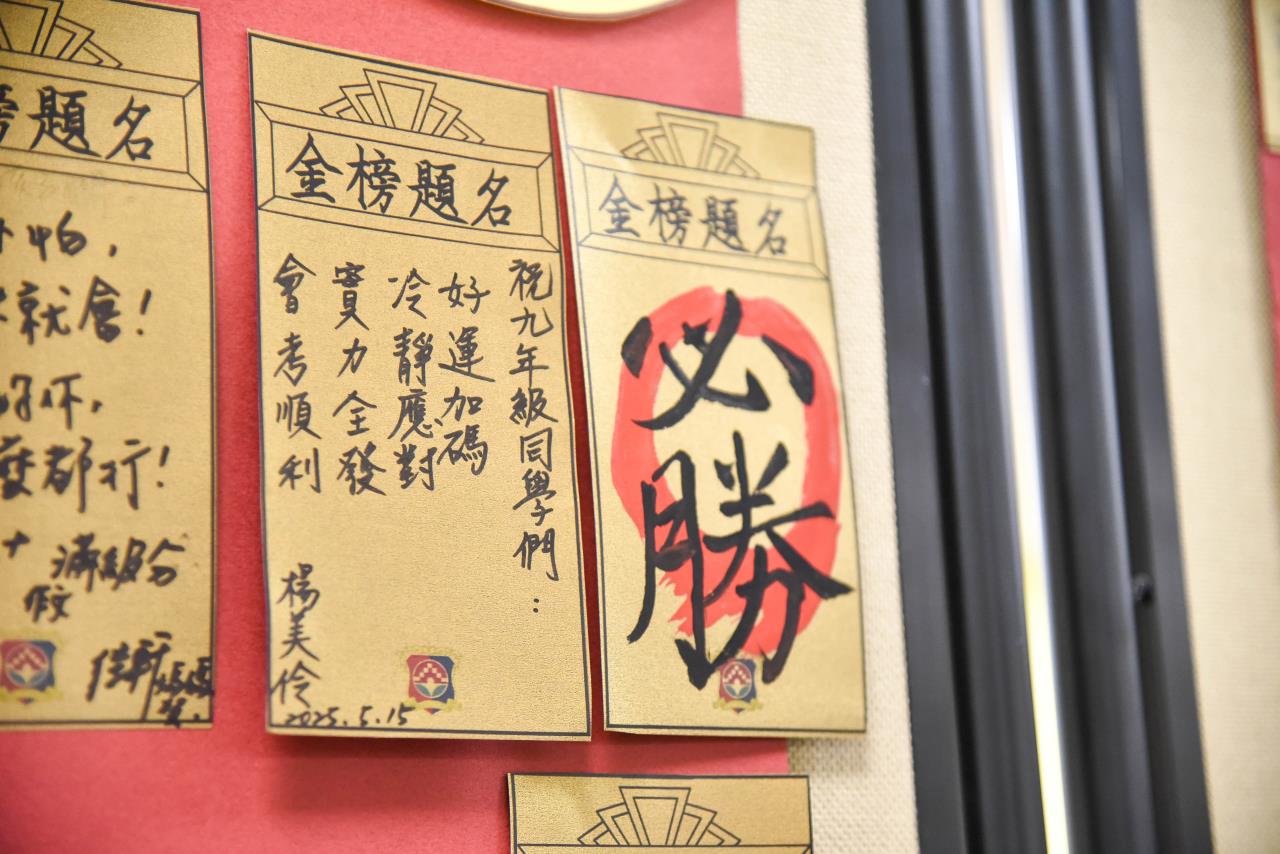 題名
怕，
就會！
都行！
滿級分
金榜題名
祝九年級同學們：
好運加碼
冷靜應對
實力全發
會考順利
楊美伶
2025.5.15
金榜題名
必勝